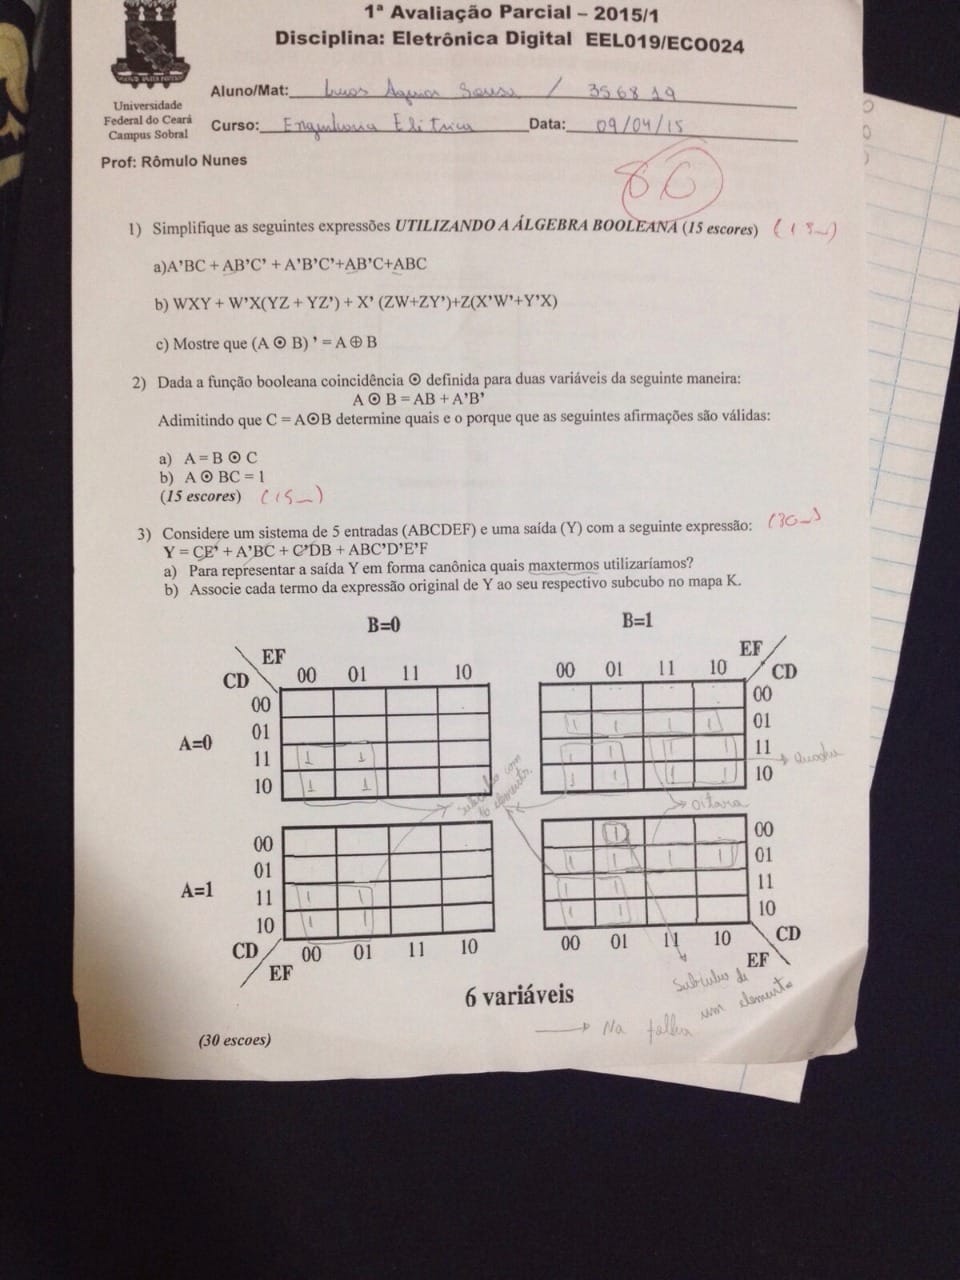 1ª Avaliação Parcial – 2015/1
Disciplina: Eletrônica Digital EEL019/ECO024
Universidade
Federal do Ceará
Campus Sobral
Aluno/Mat: Sousa / 356819
Curso: Engenharia Elétrica Data: 09/04/15
Prof: Rômulo Nunes
80
1) Simplifique as seguintes expressões UTILIZANDO A ÁLGEBRA BOOLEANA (15 escores) (15)
a)A'BC + AB'C' + A'B'C'+AB'C+ABC
b) WXY + W'X(YZ + YZ') + X' (ZW+ZY')+Z(X'W'+Y'X)
c) Mostre que (A ⊙ B) ' = A ⊕ B
2) Dada a função booleana coincidência ⊙ definida para duas variáveis da seguinte maneira:
A ⊙ B = AB + A'B'
Adimitindo que C = A⊙B determine quais e o porque que as seguintes afirmações são válidas:
a) A = B ⊙ C
b) A ⊙ BC = 1
(15 escores) (15)
3) Considere um sistema de 5 entradas (ABCDEF) e uma saída (Y) com a seguinte expressão: (30)
Y = CE' + A'BC + C'DB + ABC'D'E'F
a) Para representar a saída Y em forma canônica quais maxtermos utilizaríamos?
b) Associe cada termo da expressão original de Y ao seu respectivo subcubo no mapa K.
B=0 B=1
EF EF
CD 00 01 11 10 00 01 11 10 CD
00 00
01 1 1 1 1 01
A=0 11 1 1 1 1 1 1 11
10 1 1 1 1 1 1 10
Subcubo com
16 elementos.
oitava
00 1 00
01 1 1 1 1 01
A=1 11 1 1 1 1 11
10 1 1 1 1 10
CD 00 01 11 10 00 01 11 10 CD
EF EF
6 variáveis
Subcubo de
um elemento
Na folha
(30 escoes)